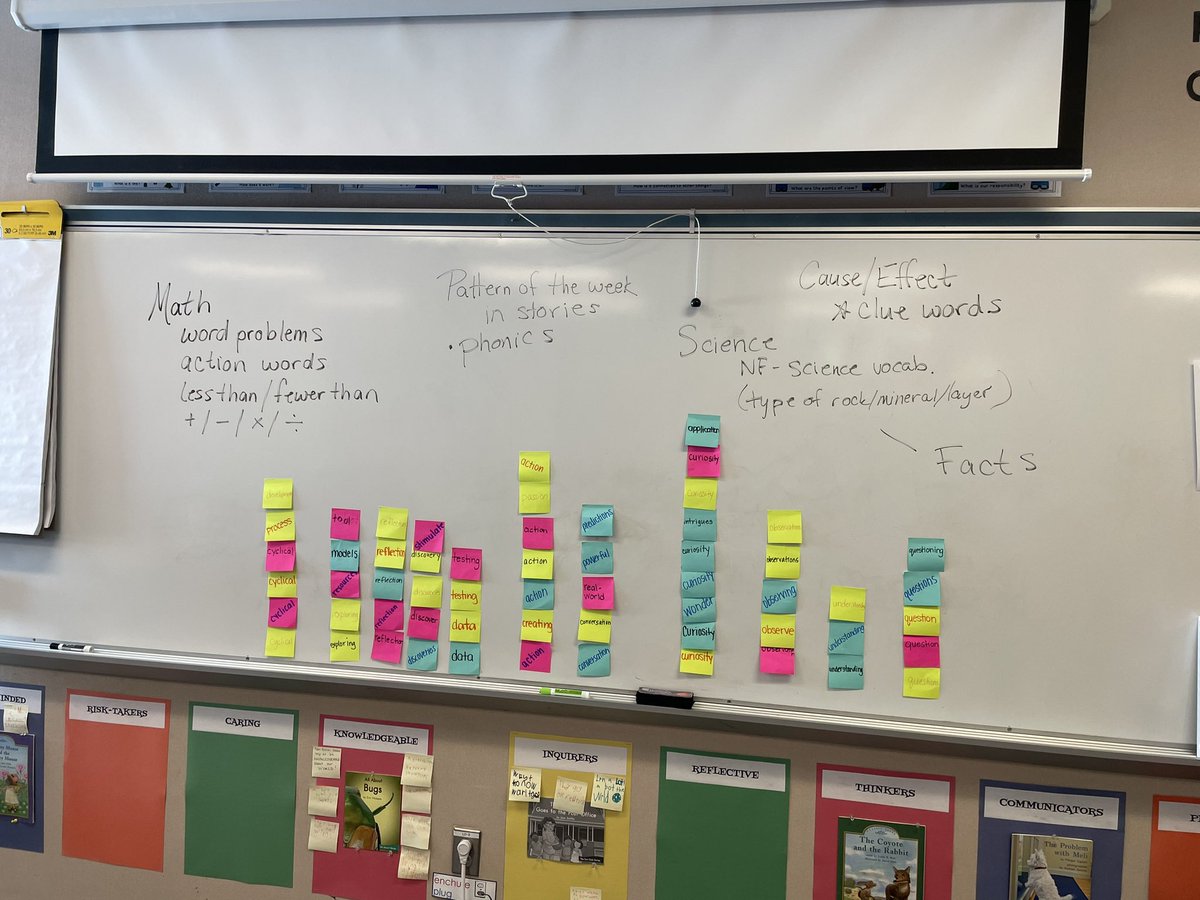 What are the points of view?
What is our responsibility?
Math
word problems
action words
less than / fewer than
+ / - / x / ÷
Pattern of the week
in stories
• phonics
Cause/Effect
☆ clue words
Science
NF - Science vocab.
(type of rock/mineral/layer)
Facts
process
cyclical
cyclical
cyclical
cyclical
tools
models
resource
exploring
exploring
reflection
reflection
reflection
reflection
reflection
stimulate
discovery
discover
discoveries
testing
testing
data
data
action
passion
action
action
action
creating
action
predictions
powerful
real-
world
conversation
conversation
application
curiosity
curiosity
intrigues
curiosity
curiosity
Wonder
Curiosity
curiosity
observation
observations
observing
observe
observing
understanding
understanding
understanding
questioning
questions
question
question
question
RISK-TAKERS
CARING
KNOWLEDGEABLE
All About
Bugs
INQUIRERS
Goes to the Post Office
REFLECTIVE
THINKERS
The Coyote
and the Rabbit
COMMUNICATORS
The Problem
with Meli
enchufe
plug